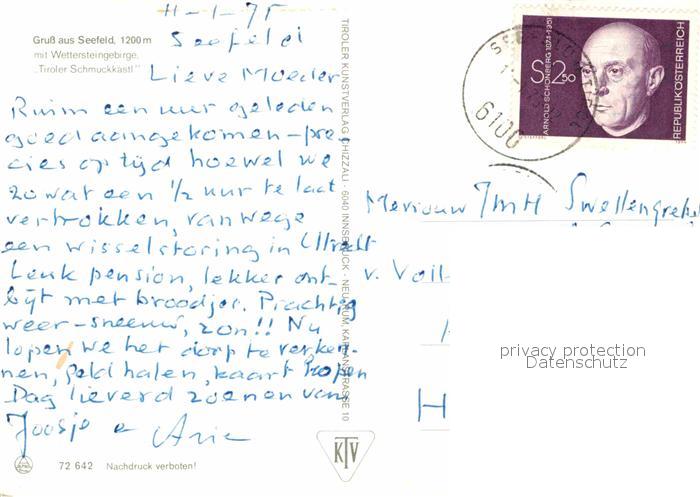 11-1-75
Seefeld
Gruß aus Seefeld, 1200 m
mit Wettersteingebirge,
„Tiroler Schmuckkastl"
Lieve Moeder
Ruim een uur geleden
goed aangekomen – pre-
cies op tijd hoewel we
zowat een ½ uur te laat
vertrokken, vanwege
een wisselstoring in Utrecht
Leuk pension, lekker ont-
bijt met broodjes. Prachtig
weer – sneeuw, zon!! Nu
lopen we het dorp te verken-
nen, geld halen, kaart kopen
Dag lieverd zoenen van
Joosje e Arie
72 642 Nachdruck verboten!
TIROLER KUNSTVERLAG CHIZZALI · 6040 INNSBRUCK - NEU-RUM, KAPLANSTRASSE 10
KTV
S 2.50
ARNOLD SCHÖNBERG 1874-1951
REPUBLIK ÖSTERREICH
6100
Mevrouw JMH
v. Voll
H
privacy protection
Datenschutz